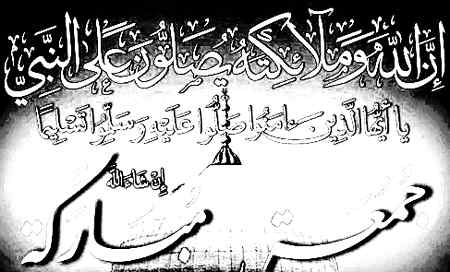 إِنَّ اللهَ وَمَلَائِكَتَهُ يُصَلُّونَ عَلَى النَّبِيِّ
يَا أَيُّهَا الَّذِينَ ءَامَنُوا صَلُّوا عَلَيْهِ وَسَلِّمُوا تَسْلِيمًا
إِنْ شَاءَ اللَّهُ
جمعة مباركة